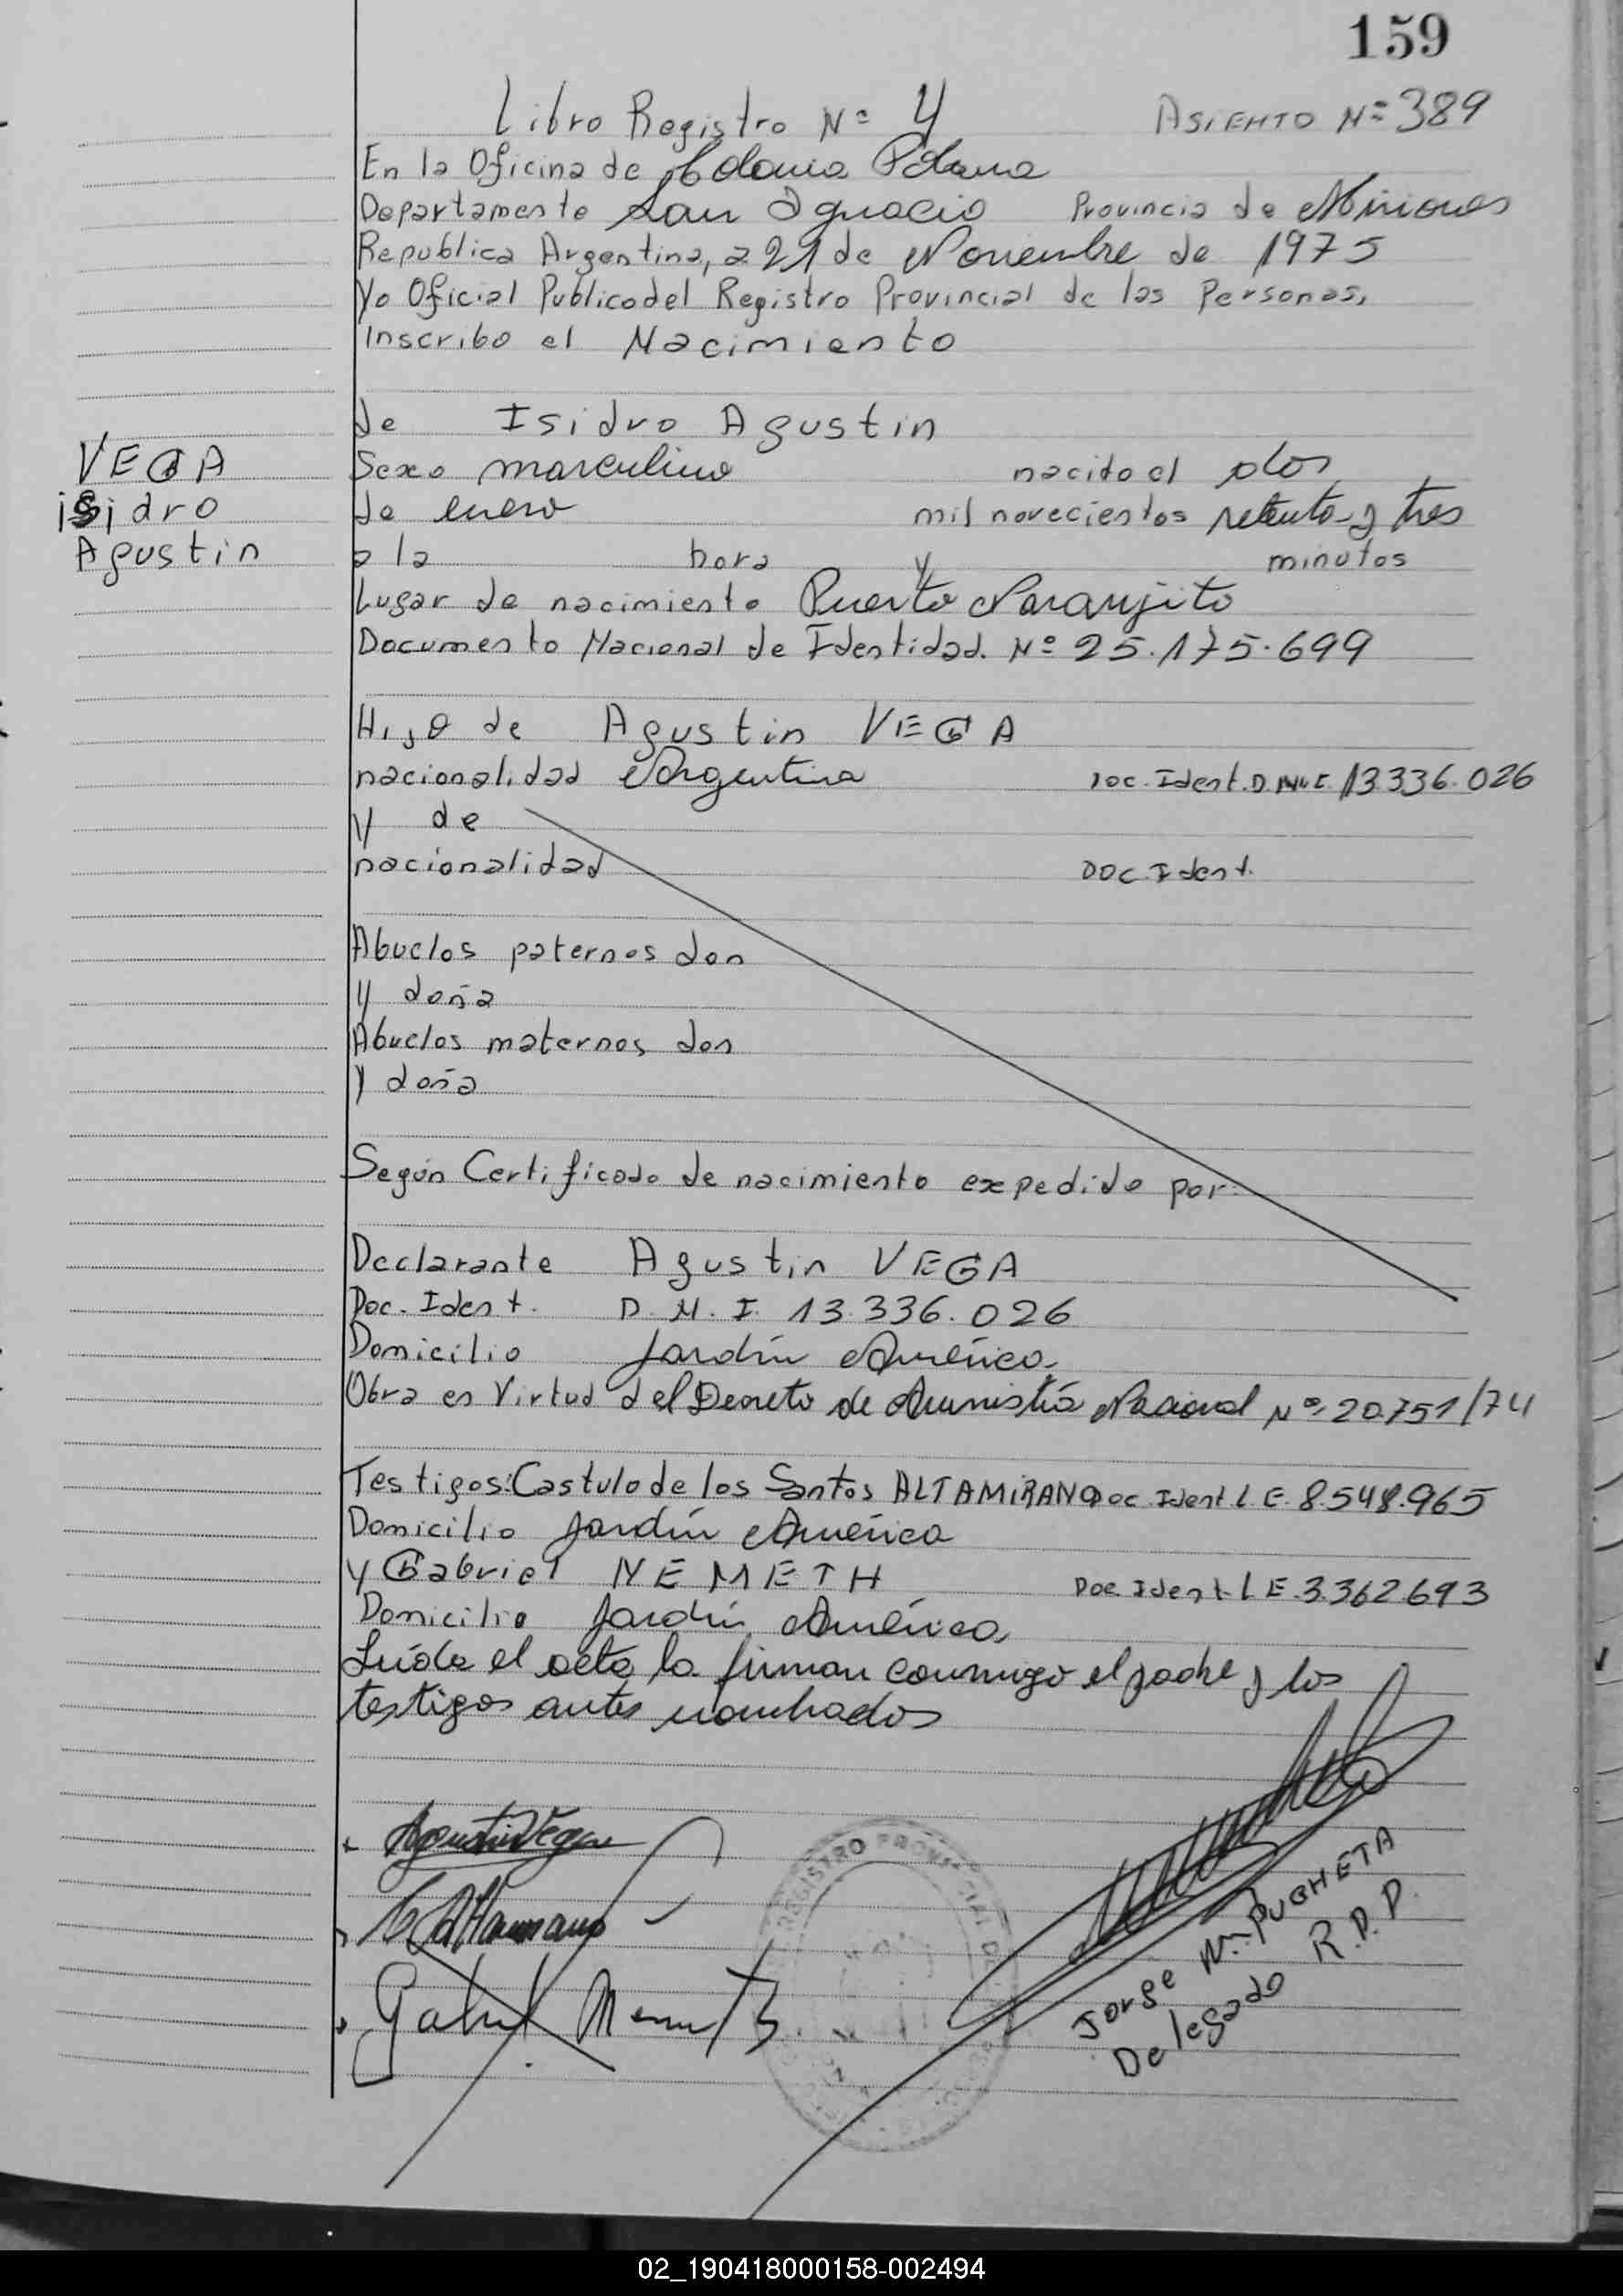 159
Libro Registro Nº 4 ASIENTO Nº 389
En la Oficina de Colonia Polana
Departamento San Ignacio Provincia de Misiones
Republica Argentina, a 21 de Noviembre de 1975
Yo Oficial Publico del Registro Provincial de las Personas,
Inscribo el Nacimiento
de Isidro Agustin
VEGA
isidro
Agustin
Sexo masculino nacido el dos
de enero mil novecientos setenta y tres
a la hora y minutos
Lugar de nacimiento Puerto Naranjito
Documento Nacional de Identidad. Nº 25.175.699
Hijo de Agustin VEGA
nacionalidad Argentina Doc. Ident. D. 13.336.026
y de
nacionalidad Doc. Ident.
Abuelos paternos don
y doña
Abuelos maternos don
y doña
Según Certificado de nacimiento expedido por:
Declarante Agustin VEGA
Doc. Ident. D.N.I. 13.336.026
Domicilio Jardín América,
Obra en Virtud del Decreto de Amnistía Nacional Nº 20.751/74
Testigos: Castulo de los Santos ALTAMIRANO Doc Ident L.E. 8.548.965
Domicilio Jardín América
y Gabriel NEMETH Doc Ident L E. 3.362.693
Domicilio Jardín América,
Leída el acta la firman conmigo el padre y los
testigos antes nombrados
Agustin Vega
C Altamirano
Gabriel Nemeth
REGISTRO PROVINCIAL DE
Jorge M. PUGHETA
Delegado R.P.P.
02_190418000158-002494